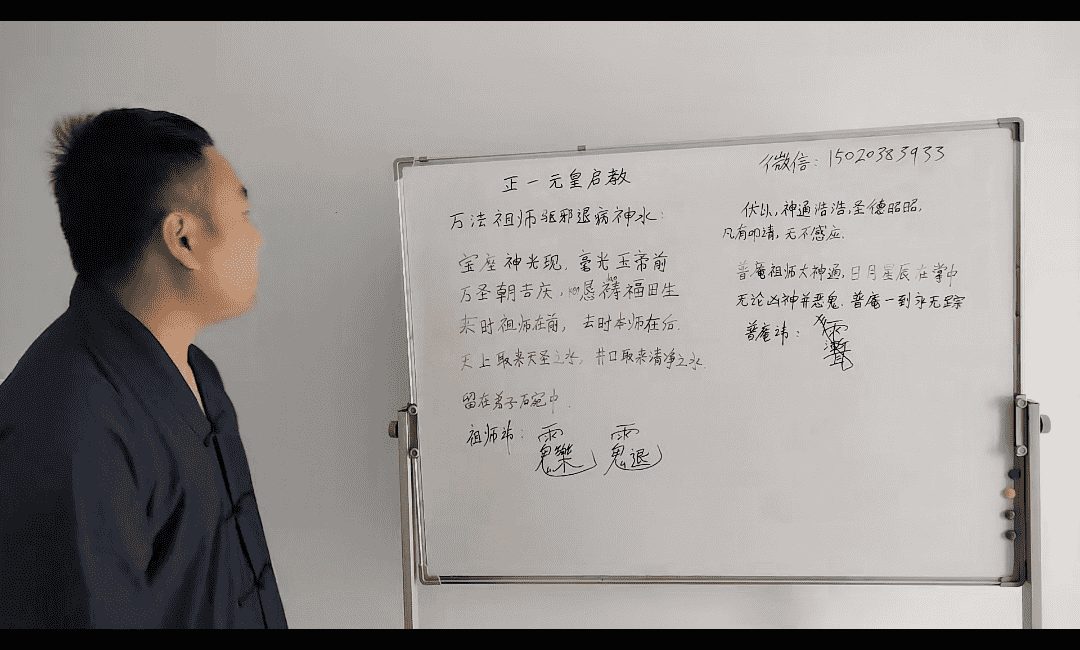 正一元皇启教
微信：15020383933
万法祖师驱邪退病神水：
宝座神光现，毫光玉帝前
万圣朝吉庆，恳祷福田生
来时祖师在前，去时本师在后.
天上取来天圣之水，井口取来清净之水.
留在弟子石宛中.
祖师讳：
伏以，神通浩浩，圣德昭昭，
凡有叩请，无不感应.
普庵祖师大神通，日月星辰在掌中
无论凶神并恶鬼，普庵一到永无踪
普庵讳：